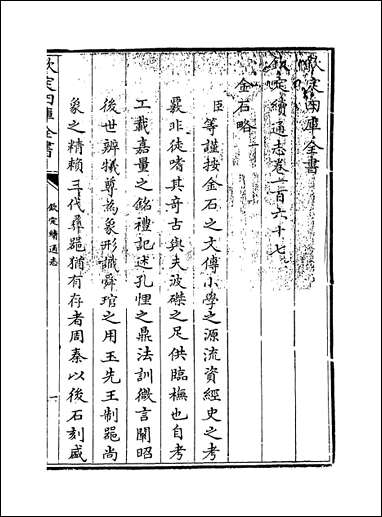 欽定四庫全書
欽定續通志卷一百六十七
金石略
臣等謹按金石之文傳小學之源流資經史之考
覈非徒嗜其竒古與夫波磔之足供臨橅也自考
工載嘉量之銘禮記述孔悝之鼎法訓微言闡昭
後世辨犧尊為象形識舜琯之用玉先王制器尚
象之精賴三代彛器猶有存者周秦以後石刻咸
欽定四庫全書
欽定續通志
一